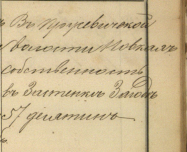 Въ Прусевичской
волости Новкамъ
собственность
въ Застенкѣ
57 десятинъ